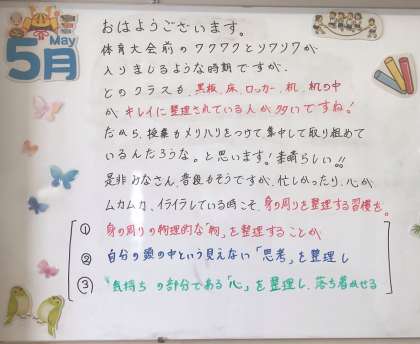 May
5月
おはようございます。
体育大会前のワクワクとソワソワが
入りまじるような時期ですが、
どのクラスも、黒板、床、ロッカー、机、机の中
がキレイに整理されている人が多いですね!
だから、授業もメリハリをつけて集中して取り組めて
いるんだろうな。と思います!素晴らしい!!
是非みなさん、普段もそうですが、忙しかったり、心が
ムカムカ、イライラしている時こそ、身の周りを整理する習慣を。
① 身の周りの物理的な「物」を整理することが
② 自分の頭の中という見えない「思考」を整理し
③ 気持ちの部分である「心」を整理し、落ち着かせる